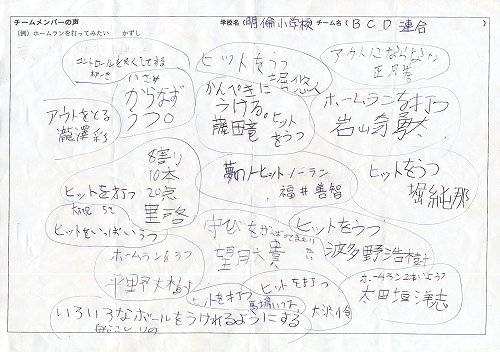 チームメンバーの声
学校名(明倫小学校 チーム名(BCD連合)
(例)ホームランを打ってみたい かずし
コントロールをよくしてする
ヒットをうつ
アウトになんない
かならず
うつ。
かんぺきに
うける。
藤田竜
ヒット
をうつ
ホームランを打つ
アウトをとる
瀧澤彩
8割り
10本
20点
ヒットを打つ
夢のノーヒットノーラン
福井善智
ヒットをうつ
堀純那
ヒットをいっぱいうつ
守びをがんばってまもり
ヒットをうつ
波多野浩樹
ホームランをうつ
平野大樹
ヒットを打つ
ヒットを打つ
大沢怜
ホームラン2本いじょう
太田垣淳志
いろいろなボールをうけれるようにする